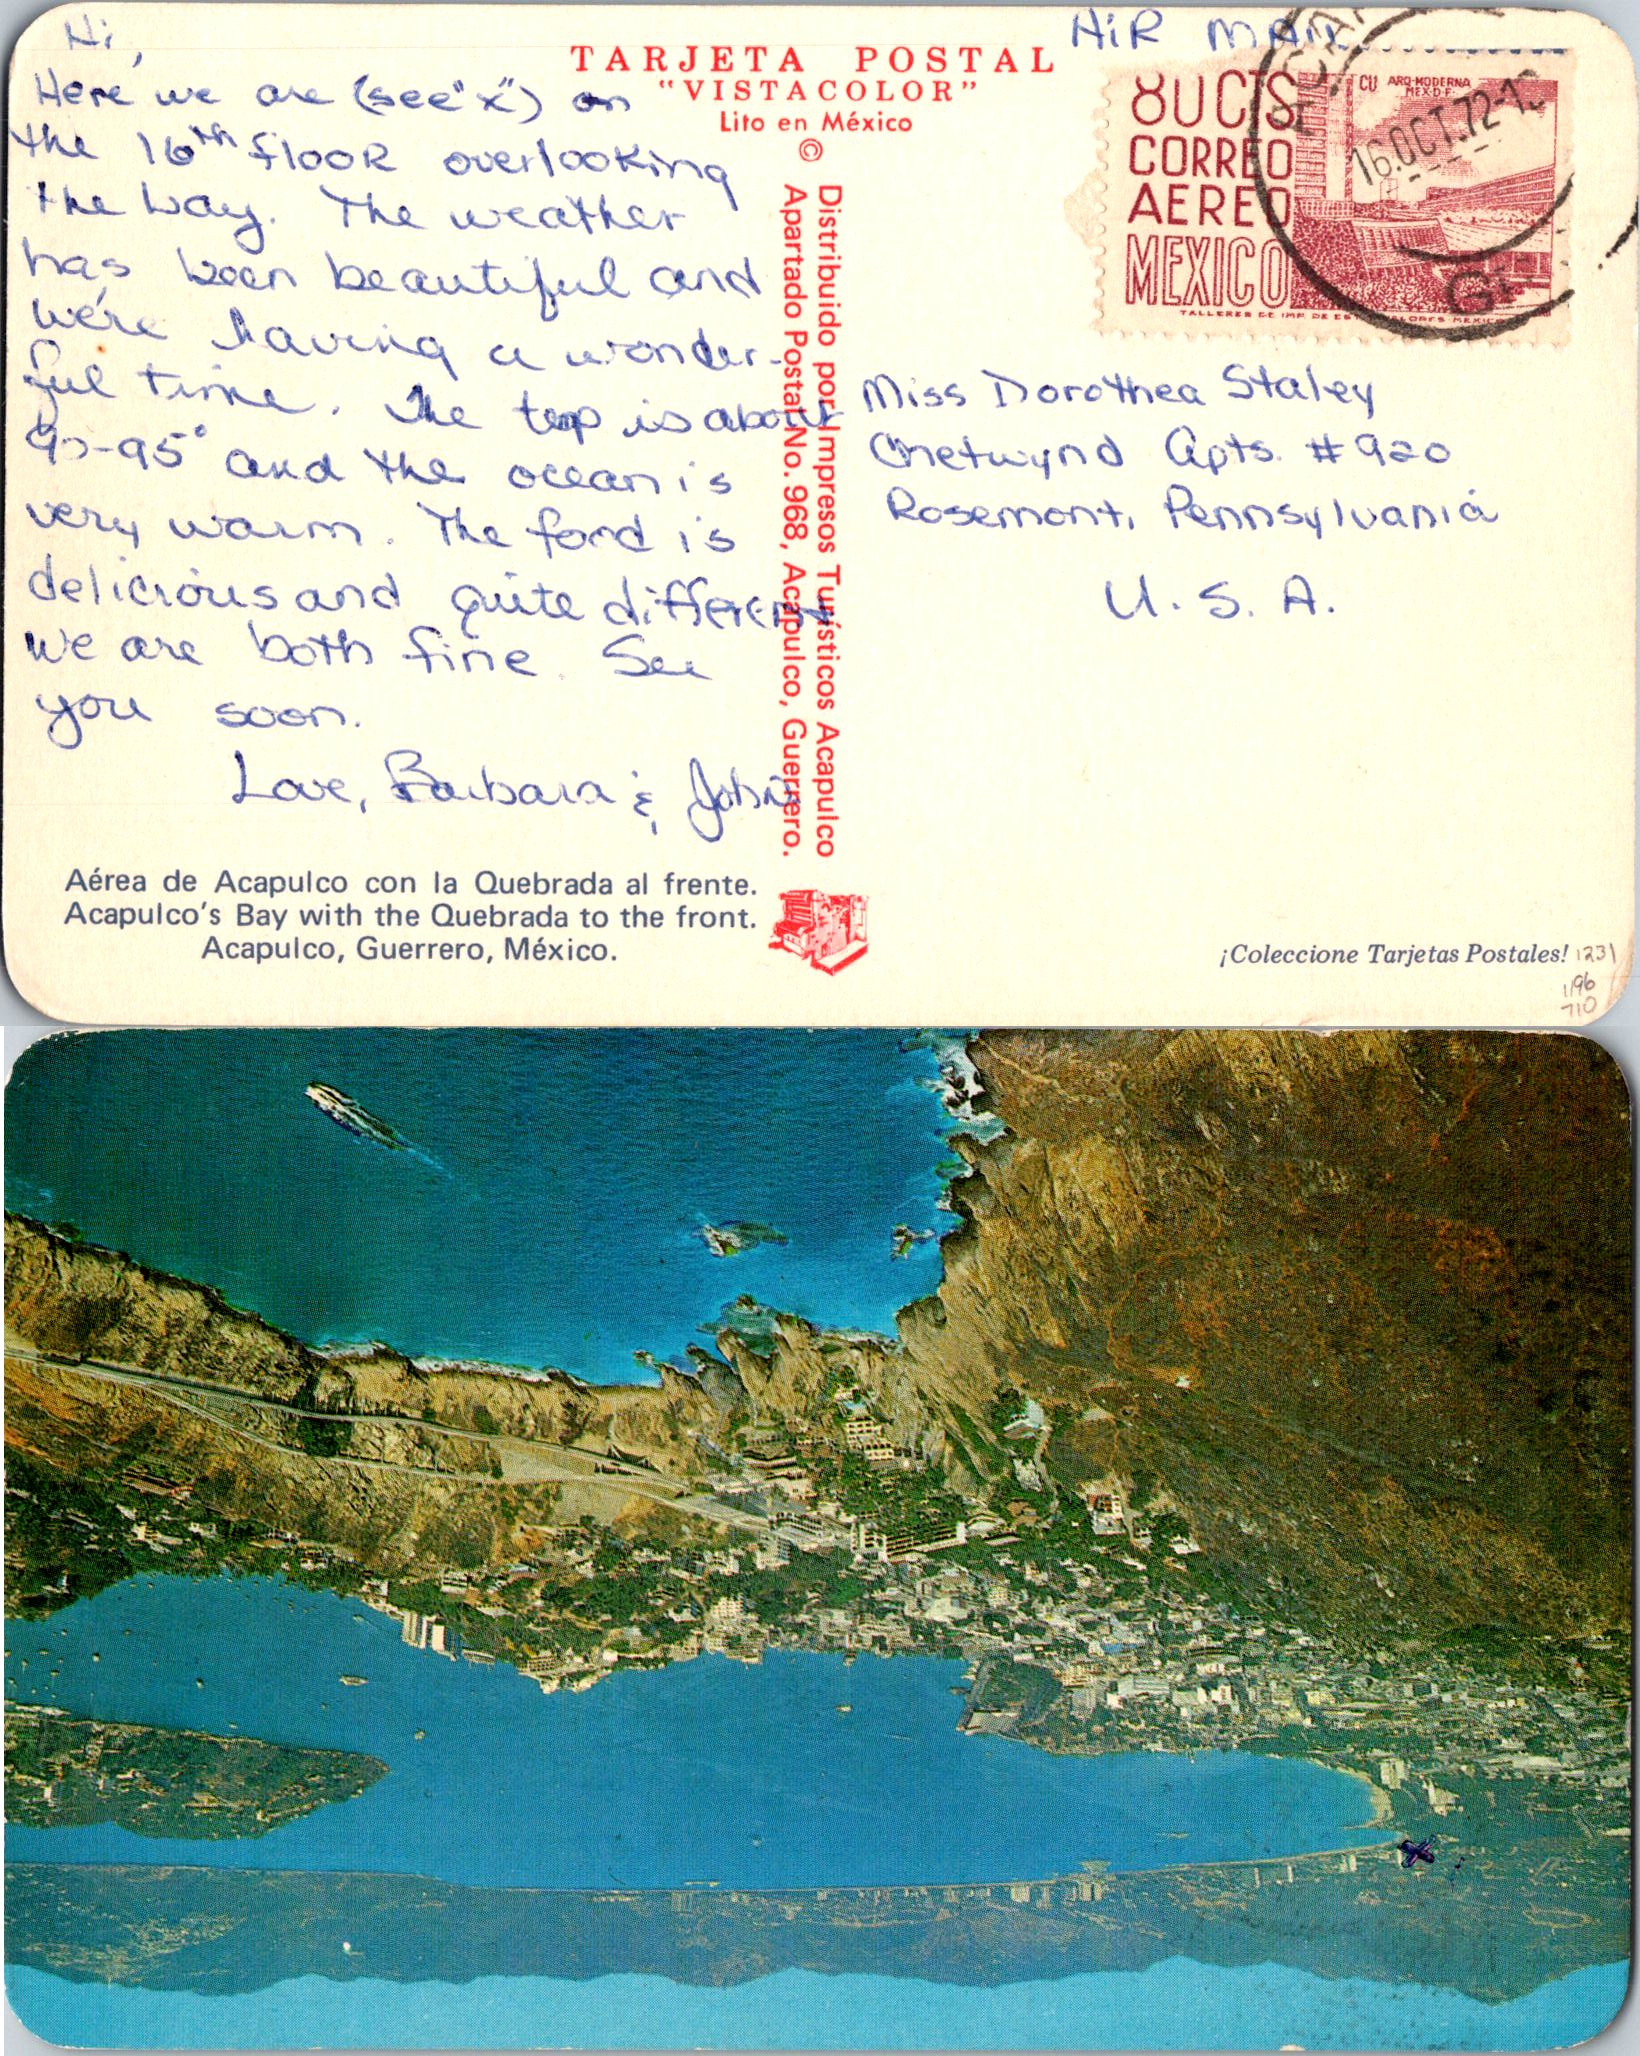 Hi,
Here we are (see "x") on
the 16th floor overlooking
the bay. The weather
has been beautiful and
we're having a wonder-
ful time. The temp is about
90-95° and the ocean is
very warm. The food is
delicious and quite different
we are both fine. See
you soon.
Love, Barbara & John
Aérea de Acapulco con la Quebrada al frente.
Acapulco's Bay with the Quebrada to the front.
Acapulco, Guerrero, México.
TARJETA POSTAL
"VISTACOLOR"
Lito en México
©
Distribuido por Impresos Turísticos Acapulco
Apartado Postal No. 968, Acapulco, Guerrero.
AIR MAIL
80 CTS
CORREO
AEREO
MEXICO
CU ARQ-MODERNA
MEX-D-F-
16.OCT.72
Miss Dorothea Staley
Chetwynd Apts. #920
Rosemont, Pennsylvania
U. S. A.
¡Coleccione Tarjetas Postales! 1231
1196
710
X